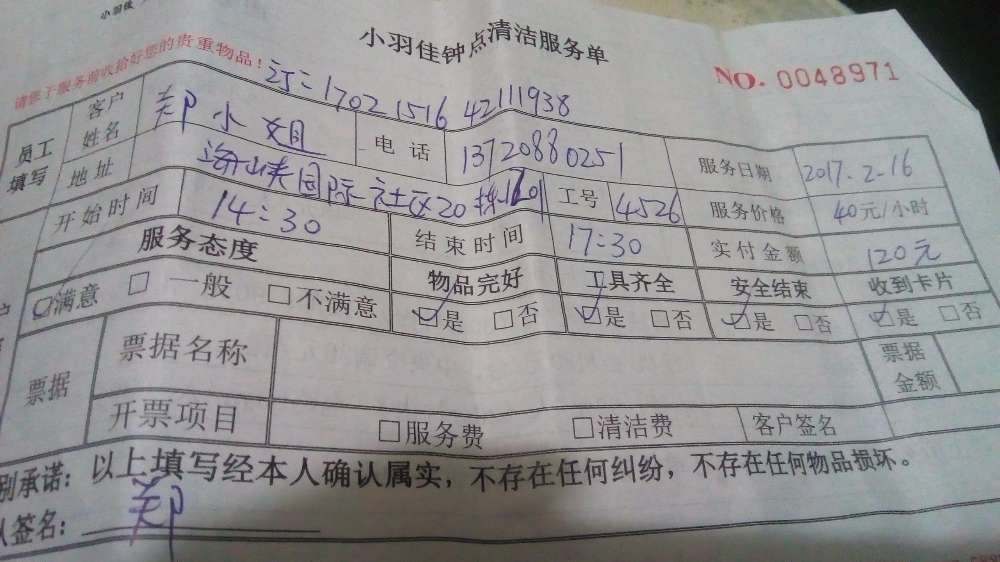 小羽佳钟点清洁服务单
NO. 0048971
请您于服务前收拾好您的贵重物品！
1702151642111938
员工填写 客户姓名 郑小姐 电话 13720880251 服务日期 2017.2.16
地址 海峡国际社区20栋1201 工号 4526 服务价格 40元/小时
开始时间 14:30 结束时间 17:30 实付金额 120元
服务态度 物品完好 工具齐全 安全结束 收到卡片
☑满意 □一般 □不满意 ☑是 □否 ☑是 □否 ☑是 □否 ☑是 □否
票据 票据名称 票据金额
开票项目 □服务费 □清洁费 客户签名
别承诺：以上填写经本人确认属实，不存在任何纠纷，不存在任何物品损坏。
签名：郑